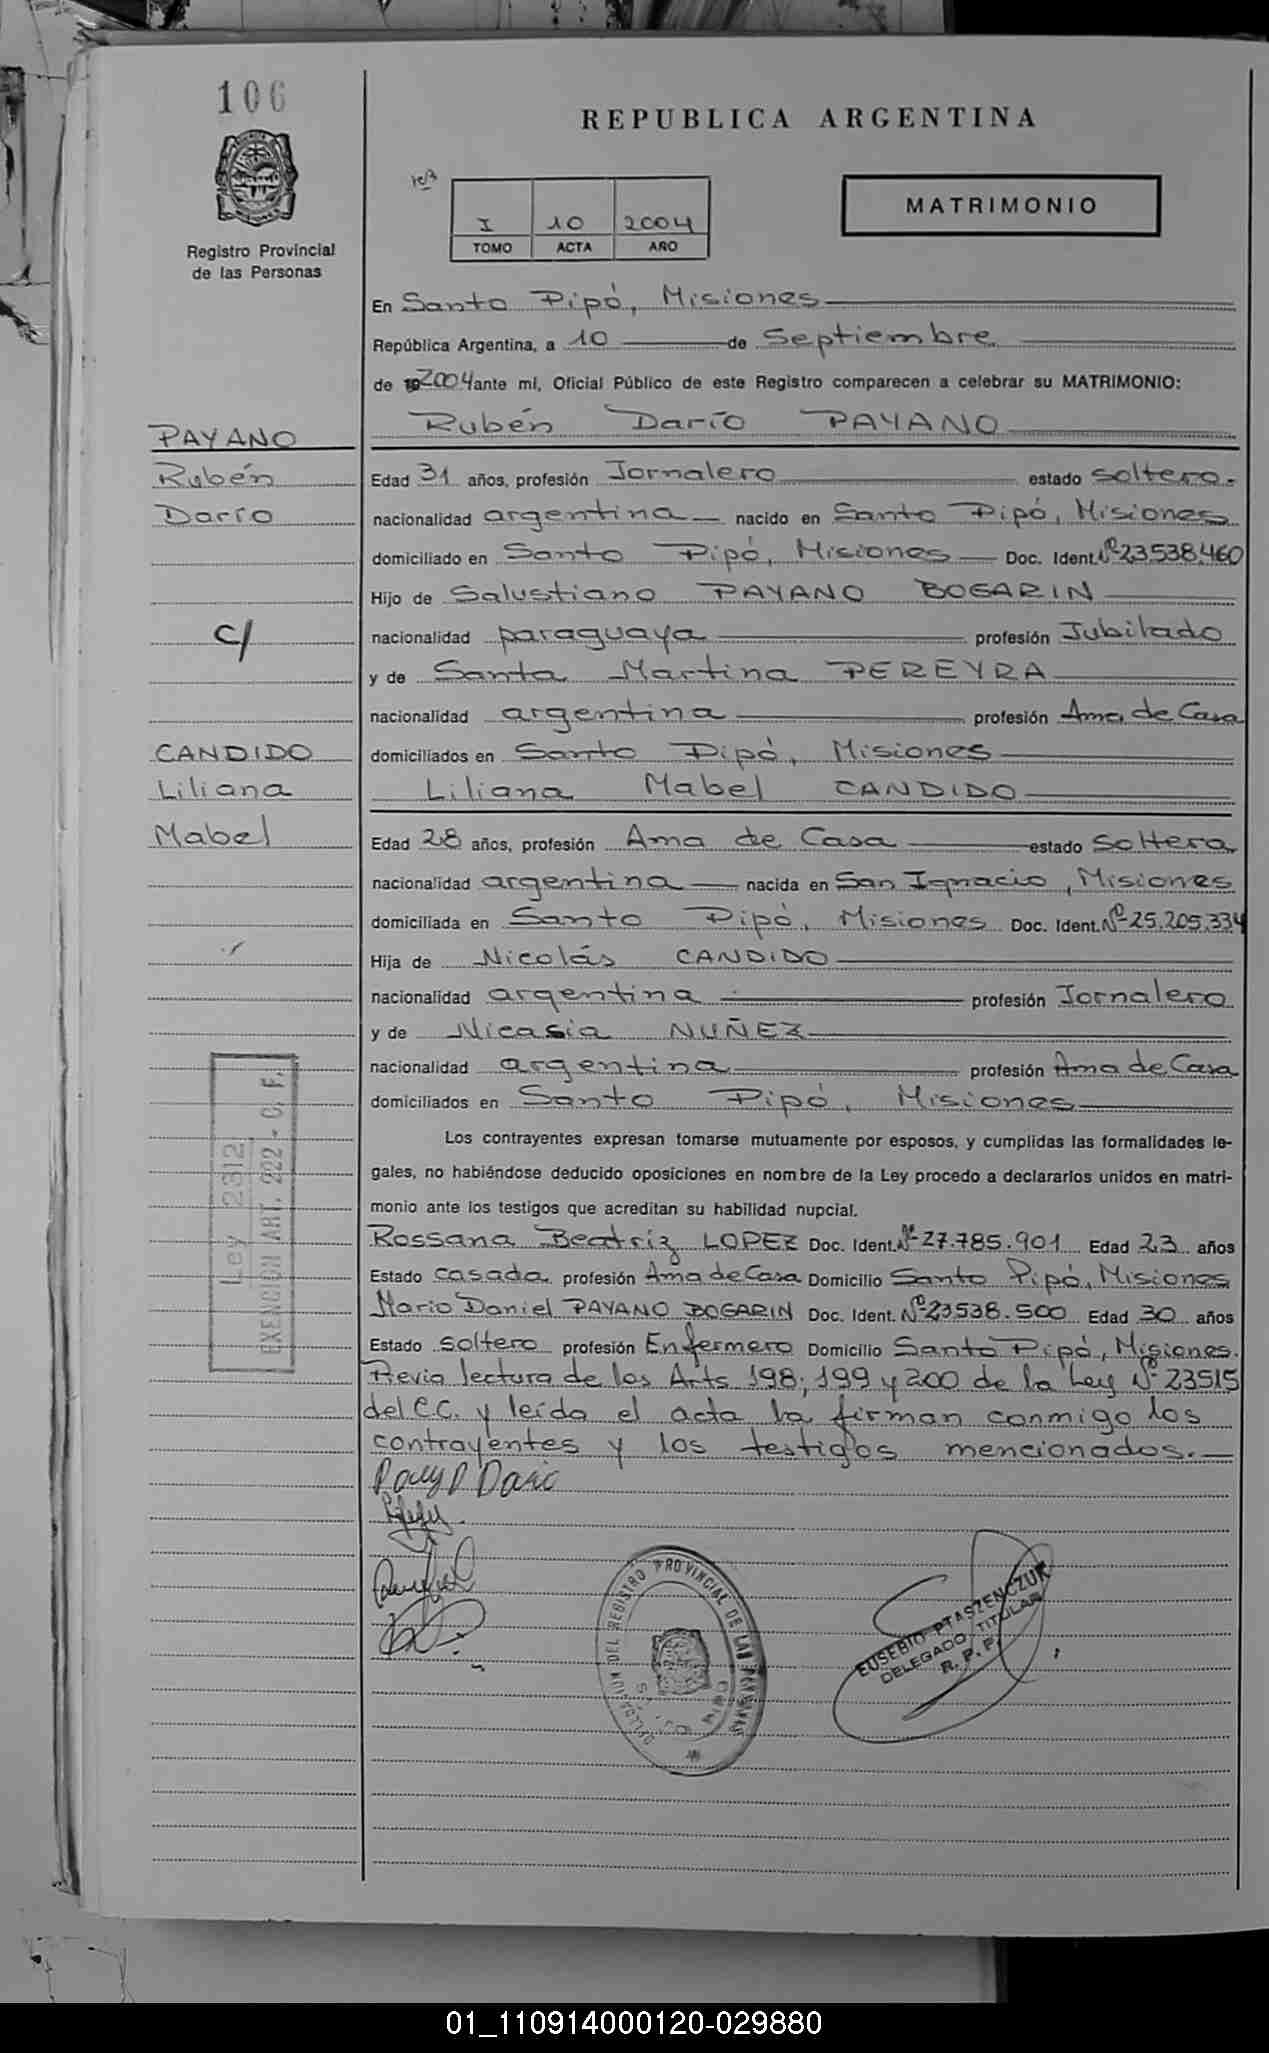 106
REPUBLICA ARGENTINA
Registro Provincial
de las Personas
I 10 2004
TOMO ACTA AÑO
MATRIMONIO
En Santo Pipó, Misiones
República Argentina, a 10 de Septiembre
de 2004 ante mí, Oficial Público de este Registro comparecen a celebrar su MATRIMONIO:
PAYANO Rubén Darío PAYANO
Rubén Edad 31 años, profesión Jornalero estado soltero.
Darío nacionalidad argentina nacido en Santo Pipó, Misiones
domiciliado en Santo Pipó, Misiones Doc. Ident. Nº 23.538.460
Hijo de Salustiano PAYANO BOGARIN
c/ nacionalidad paraguaya profesión Jubilado
y de Santa Martina PEREYRA
nacionalidad argentina profesión Ama de Casa
CANDIDO domiciliados en Santo Pipó, Misiones
Liliana Liliana Mabel CANDIDO
Mabel Edad 28 años, profesión Ama de Casa estado soltera
nacionalidad argentina nacida en San Ignacio, Misiones
domiciliada en Santo Pipó, Misiones Doc. Ident. Nº 25.205.334
Hija de Nicolás CANDIDO
nacionalidad argentina profesión Jornalero
y de Nicasia NUÑEZ
nacionalidad argentina profesión Ama de Casa
domiciliados en Santo Pipó, Misiones
Ley 2312
EXENCION ART. 222 - C. F.
Los contrayentes expresan tomarse mutuamente por esposos, y cumplidas las formalidades le-
gales, no habiéndose deducido oposiciones en nombre de la Ley procedo a declararlos unidos en matri-
monio ante los testigos que acreditan su habilidad nupcial.
Rossana Beatriz LOPEZ Doc. Ident. Nº 27.785.901 Edad 23 años
Estado casada profesión Ama de Casa Domicilio Santo Pipó, Misiones
Mario Daniel PAYANO BOGARIN Doc. Ident. Nº 23538.500 Edad 30 años
Estado soltero profesión Enfermero Domicilio Santo Pipó, Misiones.
Previa lectura de los Arts 198, 199 y 200 de la Ley Nº 23515
del C.C. y leída el acta la firman conmigo los
contrayentes y los testigos mencionados.
DELEGACION DEL REGISTRO PROVINCIAL DE LAS PERSONAS
EUSEBIO PTASZENCZUK
DELEGADO TITULAR
R. P. P.
01_110914000120-029880